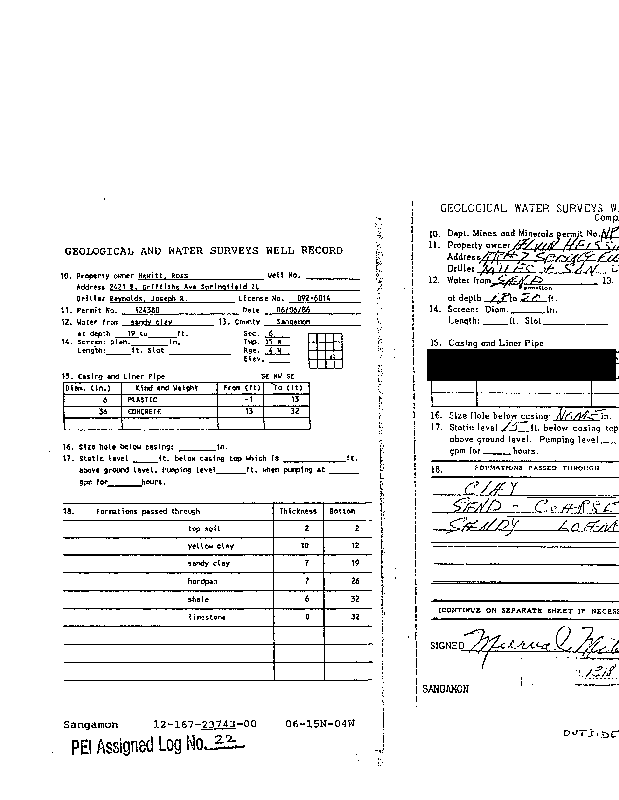 GEOLOGICAL AND WATER SURVEYS WELL RECORD
10. Property owner Hewitt, Ross Well No.
Address 2421 E. Griffiths Ave Springfield IL
Driller Reynolds, Joseph R. License No. 092-6014
11. Permit No. 124380 Date 06/06/86
12. Water from sandy clay 13. County Sangamon
at depth 19 to ft. Sec. 6
14. Screen: Diam. in. Twp. 15 N
Length: ft. Slot Rge. 4 W
Elev.
15. Casing and Liner Pipe SE NW SE
Diam. (in.) Kind and Weight From (ft) To (ft)
6 PLASTIC -1 13
36 CONCRETE 13 32
16. Size hole below casing: in.
17. Static level ft. below casing top which is ft.
above ground level. Pumping level ft. when pumping at
gpm for hours.
18. Formations passed through Thickness Bottom
top soil 2 2
yellow clay 10 12
sandy clay 7 19
hardpan 7 26
shale 6 32
limestone 0 32
Sangamon 12-167-23743-00 06-15N-04W
PEI Assigned Log No. 22
GEOLOGICAL WATER SURVEYS W
Comp
10. Dept. Mines and Minerals permit No. NP
11. Property owner
Address
Driller
12. Water from SEND 13.
Formation
at depth 18 to 20 ft.
14. Screen: Diam. in.
Length: ft. Slot
15. Casing and Liner Pipe
16. Size Hole below casing: NONE in.
17. Static level 15 ft. below casing top
above ground level. Pumping level
gpm for hours.
18. FORMATIONS PASSED THROUGH
CLAY
SEND - COARSE
SENDY
(CONTINUE ON SEPARATE SHEET IF NECESS
SIGNED
SANGAMON
OUTSIDE